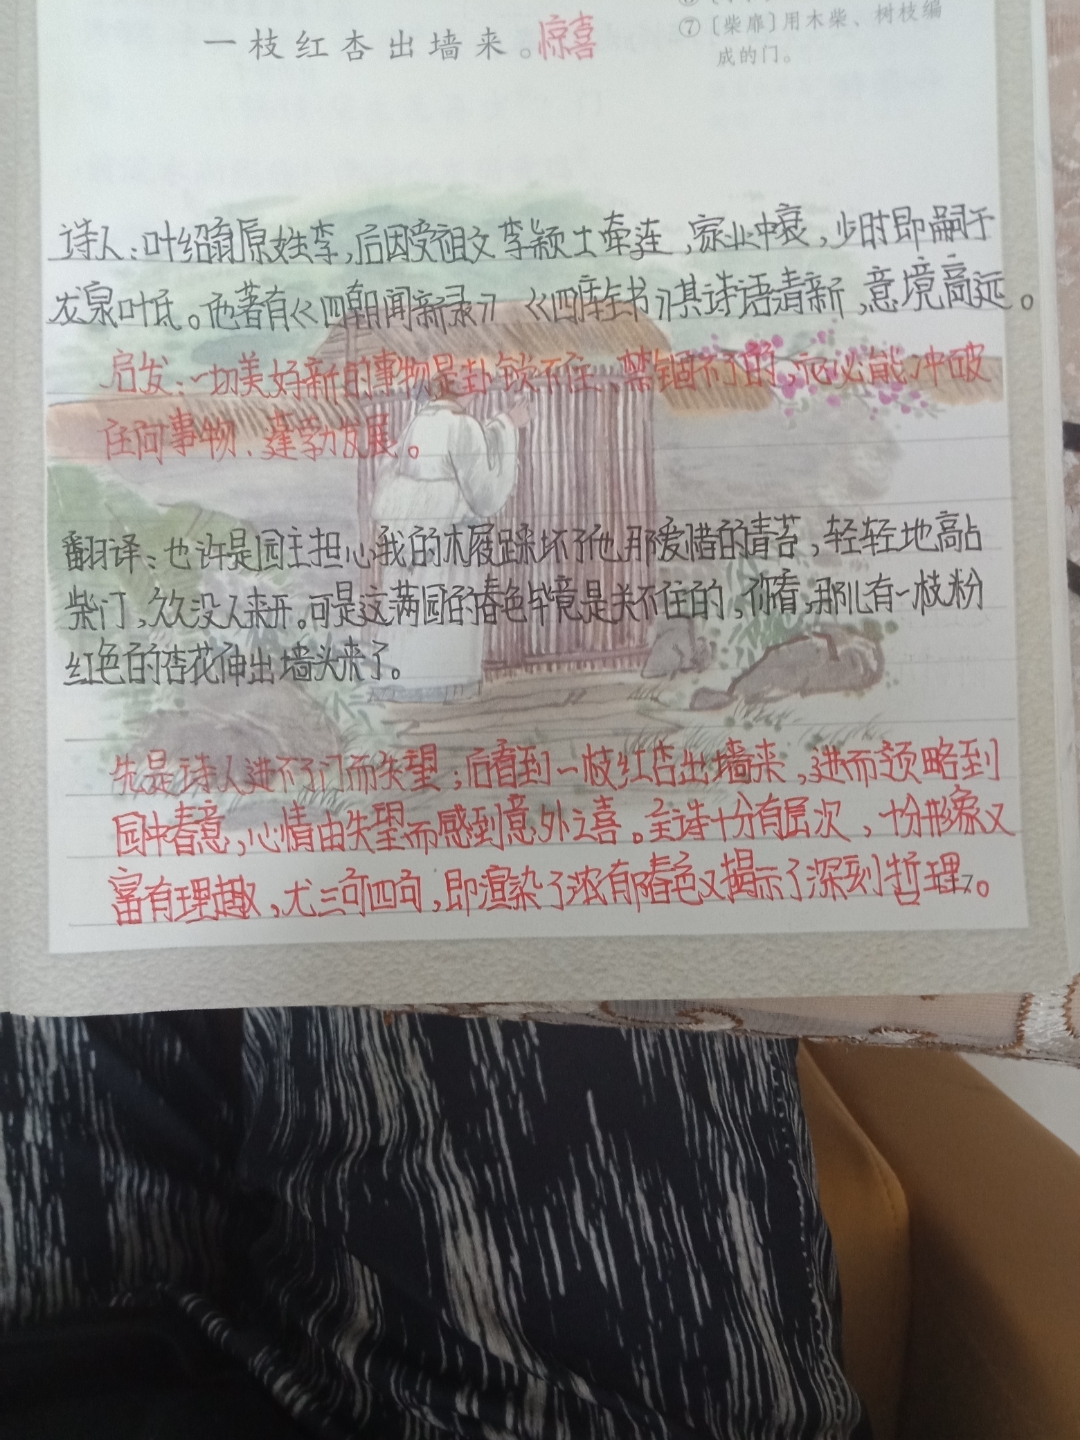 一枝红杏出墙来。惊喜
⑦〔柴扉〕用木柴、树枝编
成的门。
诗人:叶绍翁原姓李,后因受祖父李颖士牵连,家业中衰,少时即嗣于
龙泉叶氏。他著有《四朝闻新录》《四库全书》其诗语清新,意境高远。
启发:一切美好新的事物是 不住、禁锢不了的,它必能冲破
任何事物、蓬勃发展。
翻译:也许是园主担心我的木屐踩坏了他那爱惜的青苔,轻轻地敲
柴门,久久没人来开。可是这满园的春色毕竟是关不住的,你看,那儿有一枝粉
红色的杏花伸出墙头来了。
先是诗人进不了门而失望;后看到一枝红杏出墙来,进而领略到
园中春意,心情由失望而感到意外之喜。全诗十分有层次,十分形象又
富有理趣,尤三句四句,即渲染了浓郁春色又揭示了深刻哲理。